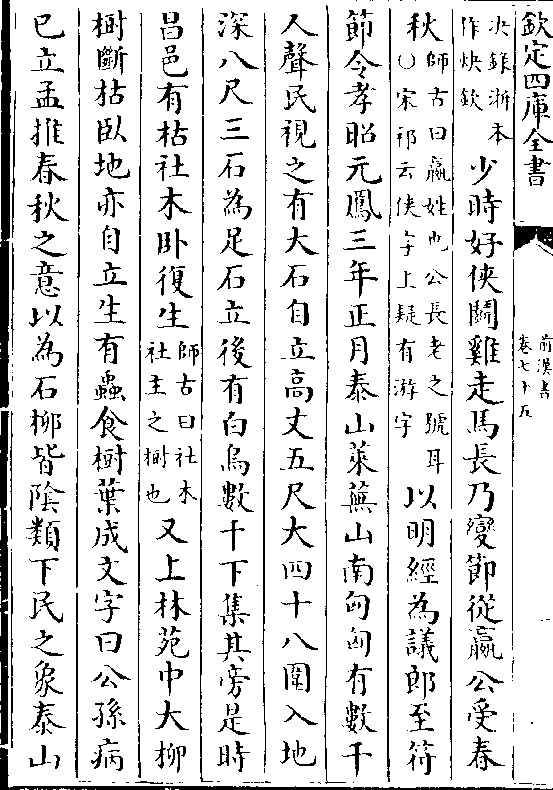 欽定四庫全書
前漢書
卷七十五
决錄浙本
作炔欽
少時好俠鬭雞走馬長乃變節從嬴公受春
秋
師古曰嬴姓也公長老之號耳
○宋祁云俠字上疑有游字
以明經為議郎至符
節令孝昭元鳳三年正月泰山萊蕪山南匈匈有數千
人聲民視之有大石自立高丈五尺大四十八圍入地
深八尺三石為足石立後有白烏數千下集其旁是時
昌邑有枯社木卧復生
師古曰社木
社主之樹也
又上林苑中大柳
樹斷枯臥地亦自立生有蟲食樹葉成文字曰公孫病
已立孟推春秋之意以為石柳皆陰類下民之象泰山